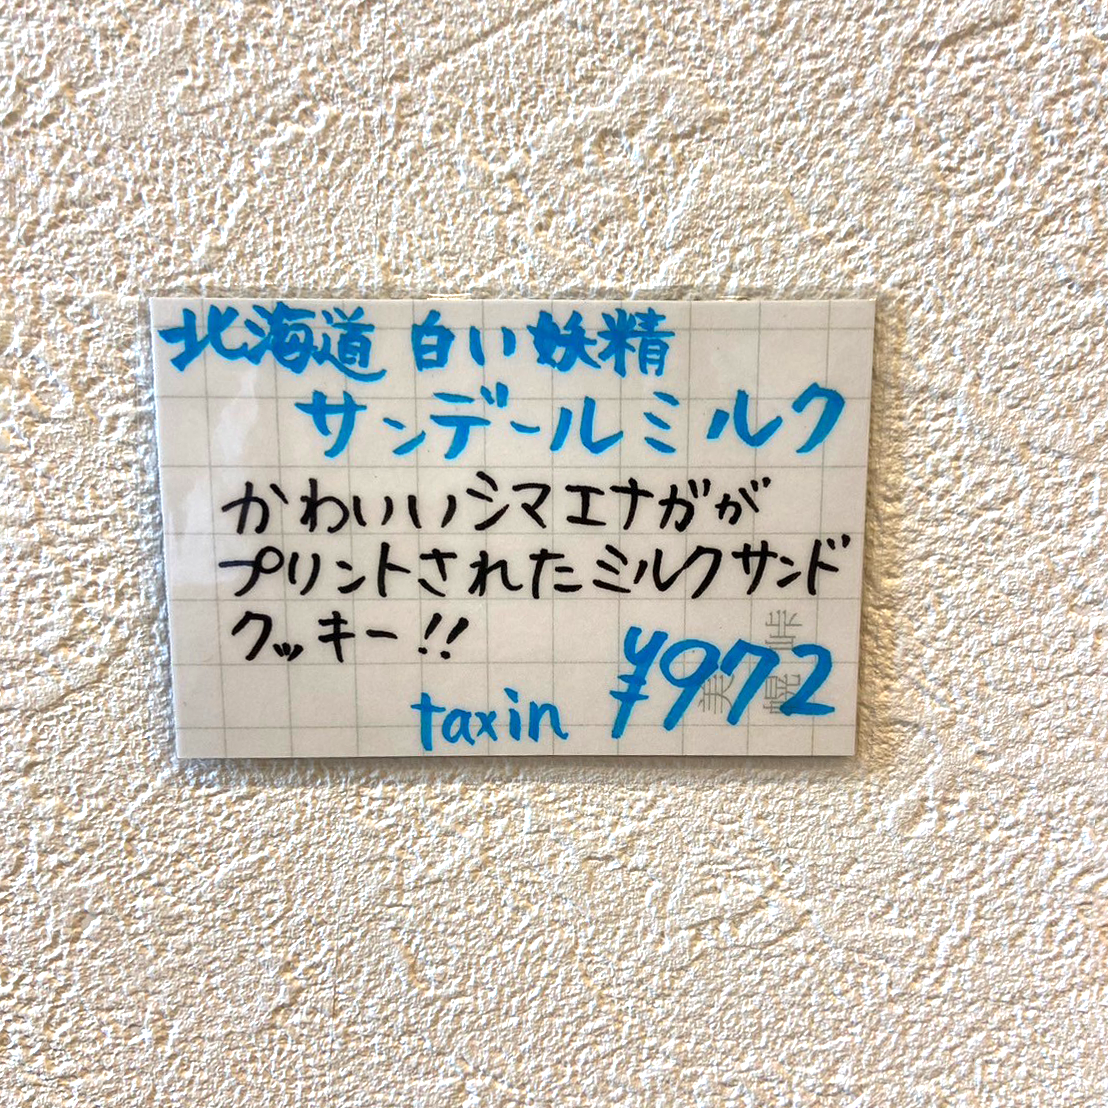 北海道 白い妖精
サンデールミルク
かわいいシマエナガが
プリントされたミルクサンド
クッキー!!
taxin ¥972